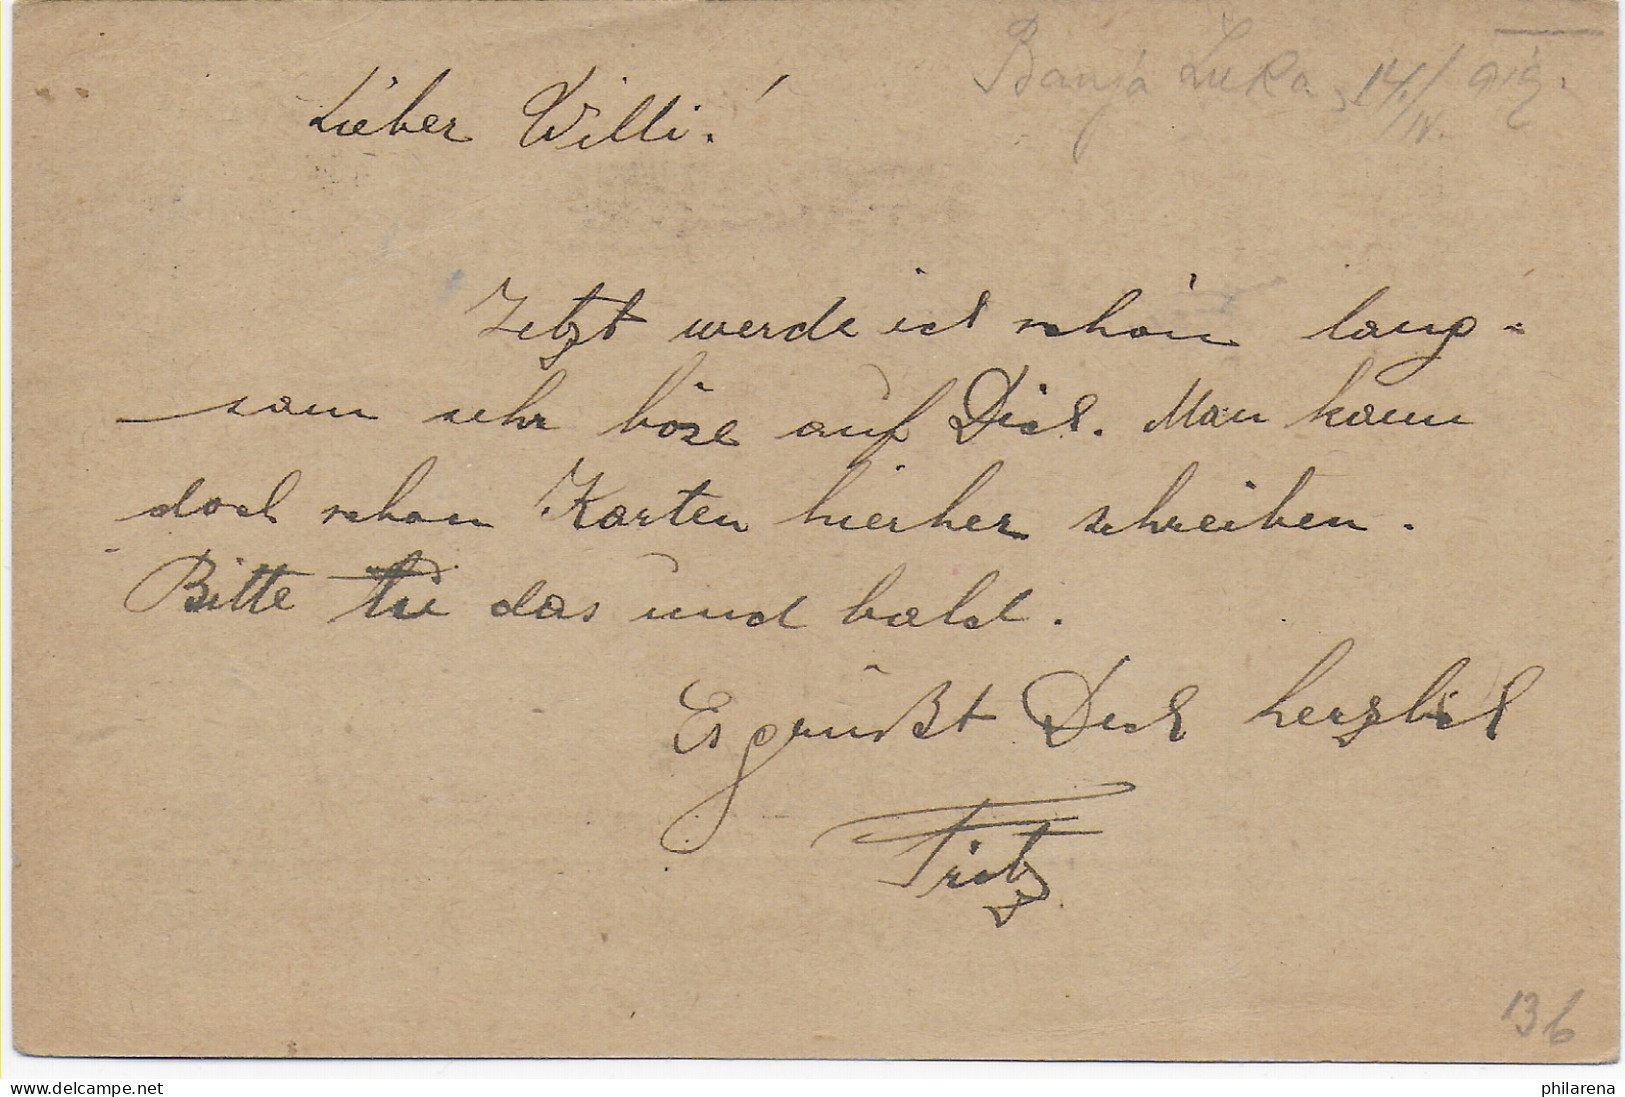 Banja Luka, 14./IV. 919.
Lieber Willi!
Jetzt werde ich schon lang-
sam sehr böse auf Dich. Man kann
doch schon Karten hierher schreiben.
Bitte tu das und bald.
Es grüßt Dich herzlich
Fritz
136
www.delcampe.net
philarena